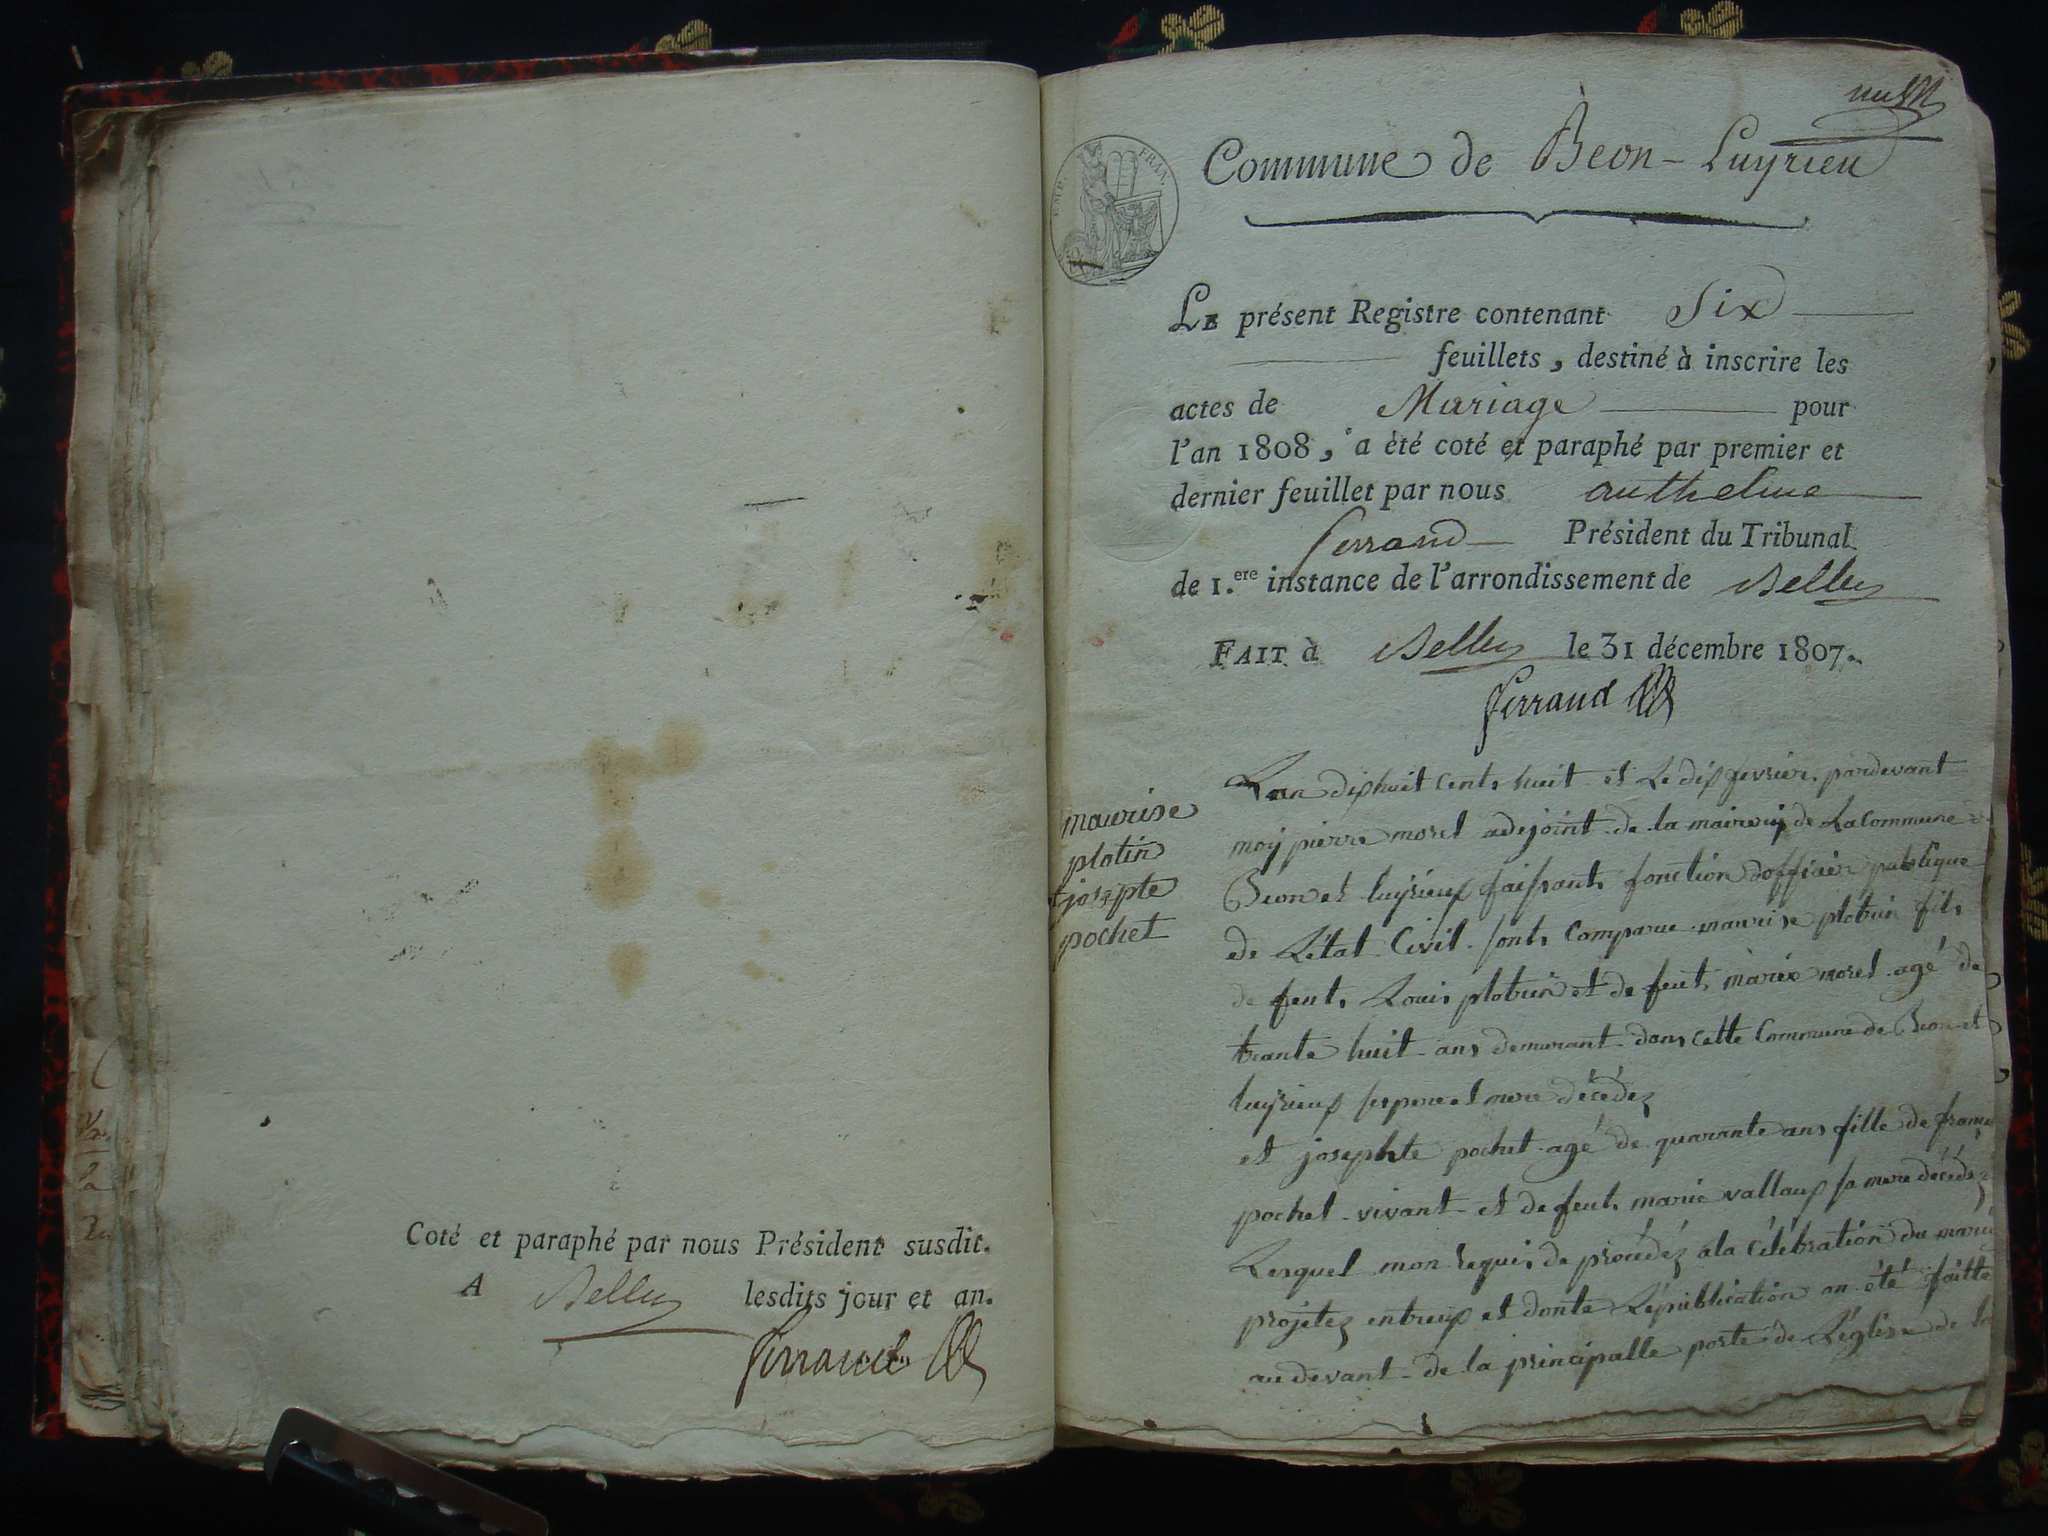 Coté et paraphé par nous Président susdit.
A Belley lesdits jour et an.
Ferrand
Commune de Béon-Luyrieu
EMP. FRAN.
LE présent Registre contenant Six
feuillets, destiné à inscrire les
actes de Mariage pour
l'an 1808, a été coté et paraphé par premier et
dernier feuillet par nous anthelme
ferrand Président du Tribunal
de 1.ere instance de l'arrondissement de Belley
FAIT à Belley le 31 décembre 1807.
Ferrand
maurise
plotin
et josepte
pochet
Lan dixhuit cents huit et Le dix fevrier, pardevant
moy pierre morel adejoint de la maireri de La Commune
Beon et luyrieux faissants fonction dofficier publique
de Létat Civil sonts Comparue maurise plotin fils
de feuts Louis plotin et de feuts marie morel agé de
trante huit ans demurant dans cette Commune de Beon et
luyrieux ses pere et mere décédez
et josephte pochet agé de quarante ans fille de
pochet vivant et de feuts marie vallaux sa mere décédez
Lesquel mon requis de procédez a la célébration du
projetez entreux et donte Lépublication on été faitte
au devant de la principalle porte de Léglise de la